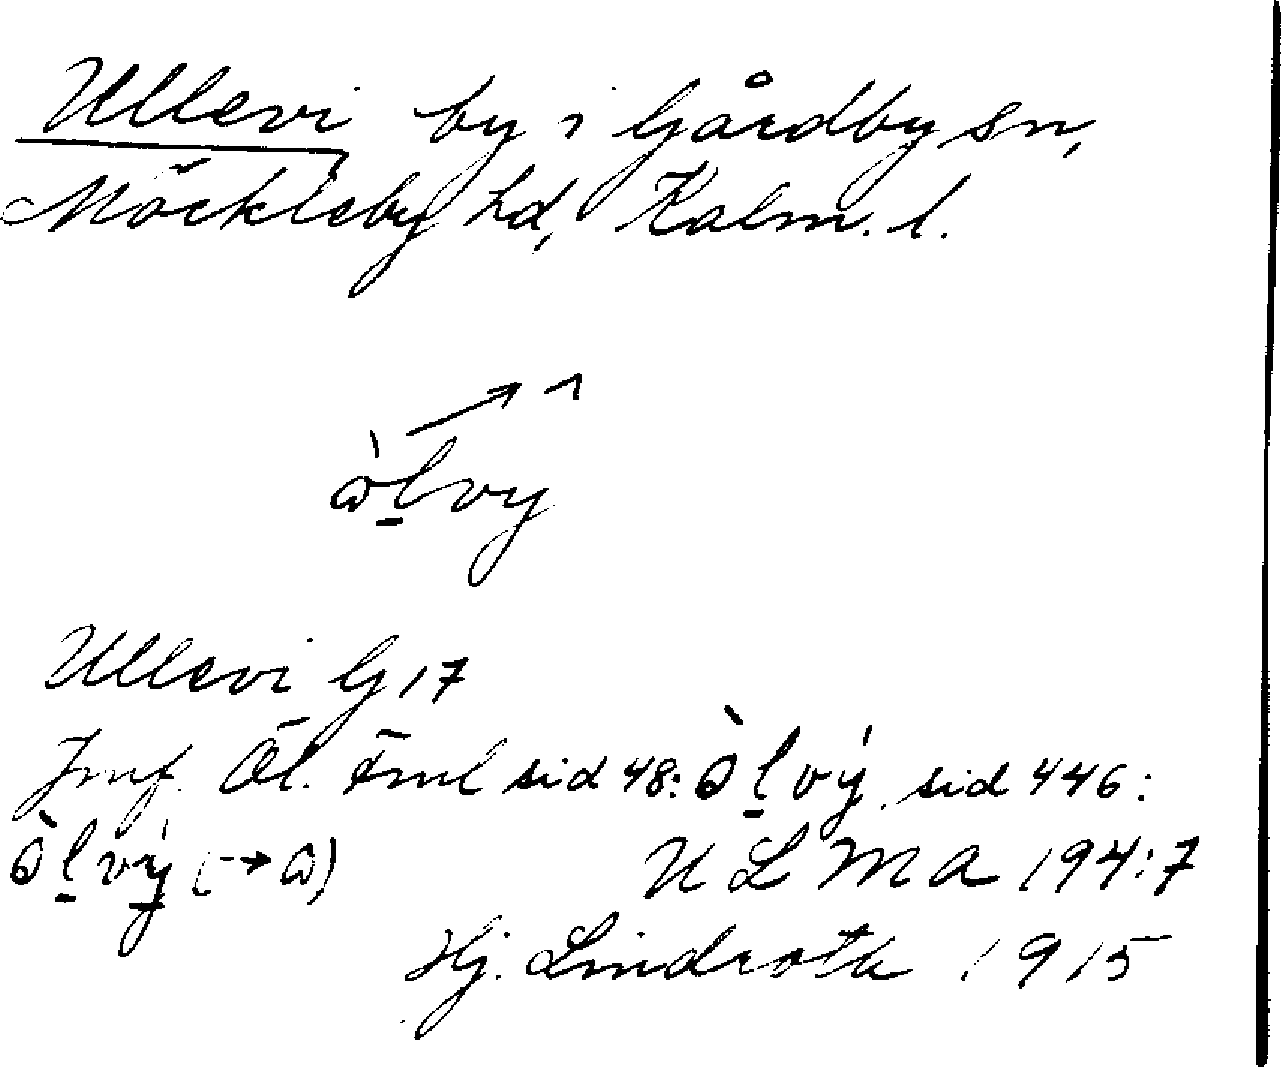 Ullevi by i Gårdby sn,
Möckleby hd, Kalm. l.
ɷ̀l̠vy
Ullevi G 17
Jmf. Öl. Fml sid 48: ò̀l̠vý, sid 446:
ò̀l̠vý̠ (→ɷ) ULMA 194:7
Hj. Lindroth 1915